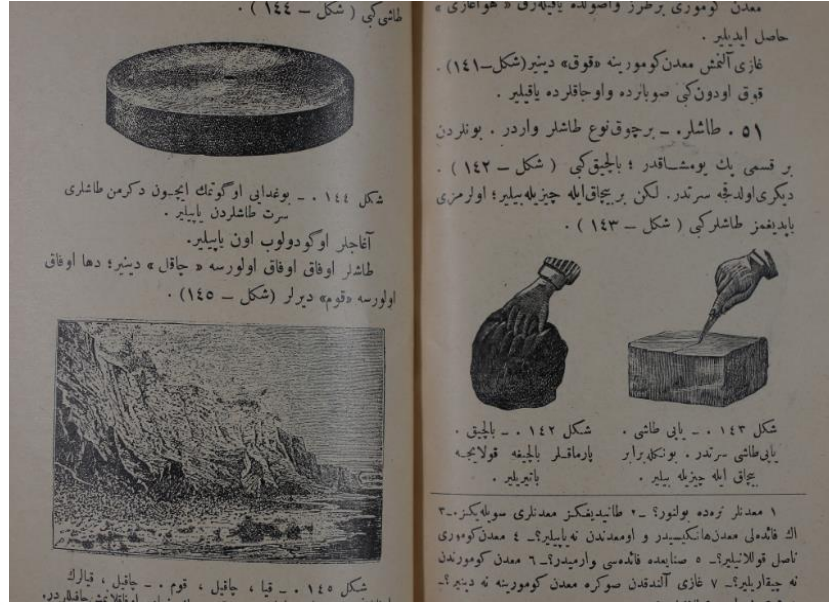 معدن كومورى بر طرز واصولده ياقيلەرق « هواغازى »
حاصل ايديلير .
غازى آلنمش معدن كومورينه «قوق» دينير (شكل–١٤١) .
قوق اودون كبى صوبالرده واوجاقلرده ياقيلير .
٥١ . طاشلر. ــ بر چوق نوع طاشلر واردر . بونلردن
بر قسمى پك يومشاقدر ؛ بالچيق كبى ( شكل – ١٤٢ ) .
ديكرى اولدقجه سرتدر. لكن بر بيچاق ايله چيزيله بيلير ؛ اولرمزى
ياپديغمز طاشلر كبى ( شكل – ١٤٣ ) .
شكل ١٤٣ . ــ ياپى طاشى .
ياپى طاشى سرتدر . بونكله برابر
بيچاق ايله چيزيله بيلير .
شكل ١٤٢ . ــ بالچيق .
پارماقلر بالچيغه قولايجه
باتيريلير .
١ معدنلر نره ده بولنور؟ ــ ٢ طانيديغكز معدنلرى سويله يكز. ــ ٣
اك فائده لى معدن هانكيسيدر و اومعدندن نه ياپيلير؟ ــ ٤ معدن كومورى
ناصل قوللانيلير؟ ــ ٥ صنايعده فائده سى وارميدر؟ ــ ٦ معدن كومورندن
نه چيقاريلير؟ ــ ٧ غازى آلندقدن صوكره معدن كومورينه نه دينير؟ ــ
طاشى كبى ( شكل – ١٤٤ ) .
شكل ١٤٤ . ــ بوغدايى اوكوتمك ايچون دكرمن طاشلرى
سرت طاشلردن ياپيلير .
آغاجلر اوكودولوب اون ياپيلير.
طاشلر اوفاق اوفاق اولورسه « چاقل » دينير ؛ دها اوفاق
اولورسه «قوم» ديرلر (شكل – ١٤٥) .
شكل ١٤٥ . ــ قيا ، چاقيل ، قوم . ــ چاقيل ، قيالرك